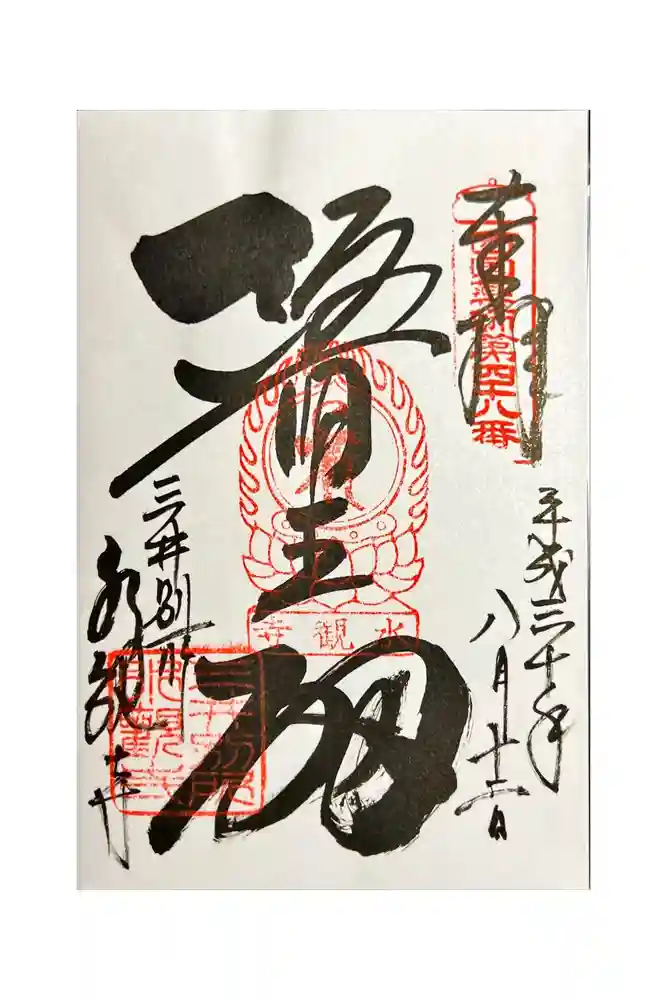 奉拝
西国薬師第四十八番
平成三十年
八月十二日
醫王
水観寺
三井別所
水観寺
三井別所
水観寺